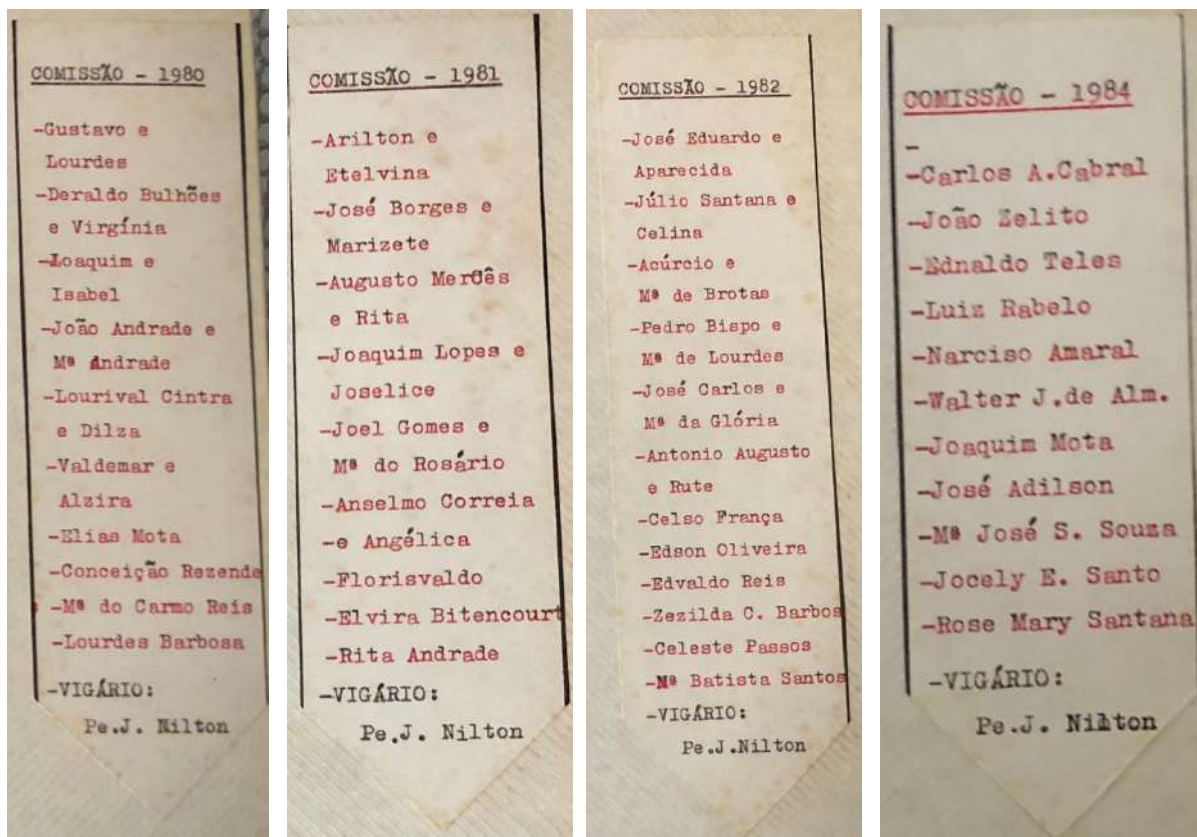 COMISSÃO - 1980
-Gustavo e
Lourdes
-Deraldo Bulhões
e Virgínia
-Joaquim e
Isabel
-João Andrade e
Mª Andrade
-Lourival Cintra
e Dilza
-Valdemar e
Alzira
-Elias Mota
-Conceição Rezende
-Mª do Carmo Reis
-Lourdes Barbosa
-VIGÁRIO:
Pe.J. Nilton
COMISSÃO - 1981
-Arilton e
Etelvina
-José Borges e
Marizete
-Augusto Mercês
e Rita
-Joaquim Lopes e
Joselice
-Joel Gomes e
Mª do Rosário
-Anselmo Correia
-e Angélica
-Florisvaldo
-Elvira Bitencourt
-Rita Andrade
-VIGÁRIO:
Pe.J. Nilton
COMISSÃO - 1982
-José Eduardo e
Aparecida
-Júlio Santana e
Celina
-Acúrcio e
Mª de Brotas
-Pedro Bispo e
Mª de Lourdes
-José Carlos e
Mª da Glória
-Antonio Augusto
e Rute
-Celso França
-Edson Oliveira
-Edvaldo Reis
-Zezilda C. Barbos
-Celeste Passos
-Mª Batista Santos
-VIGÁRIO:
Pe.J.Nilton
COMISSÃO - 1984
-
-Carlos A.Cabral
-João Zelito
-Ednaldo Teles
-Luiz Rabelo
-Narciso Amaral
-Walter J.de Alm.
-Joaquim Mota
-José Adilson
-Mª José S. Souza
-Jocely E. Santo
-Rose Mary Santana
-VIGÁRIO:
Pe.J. Nilton